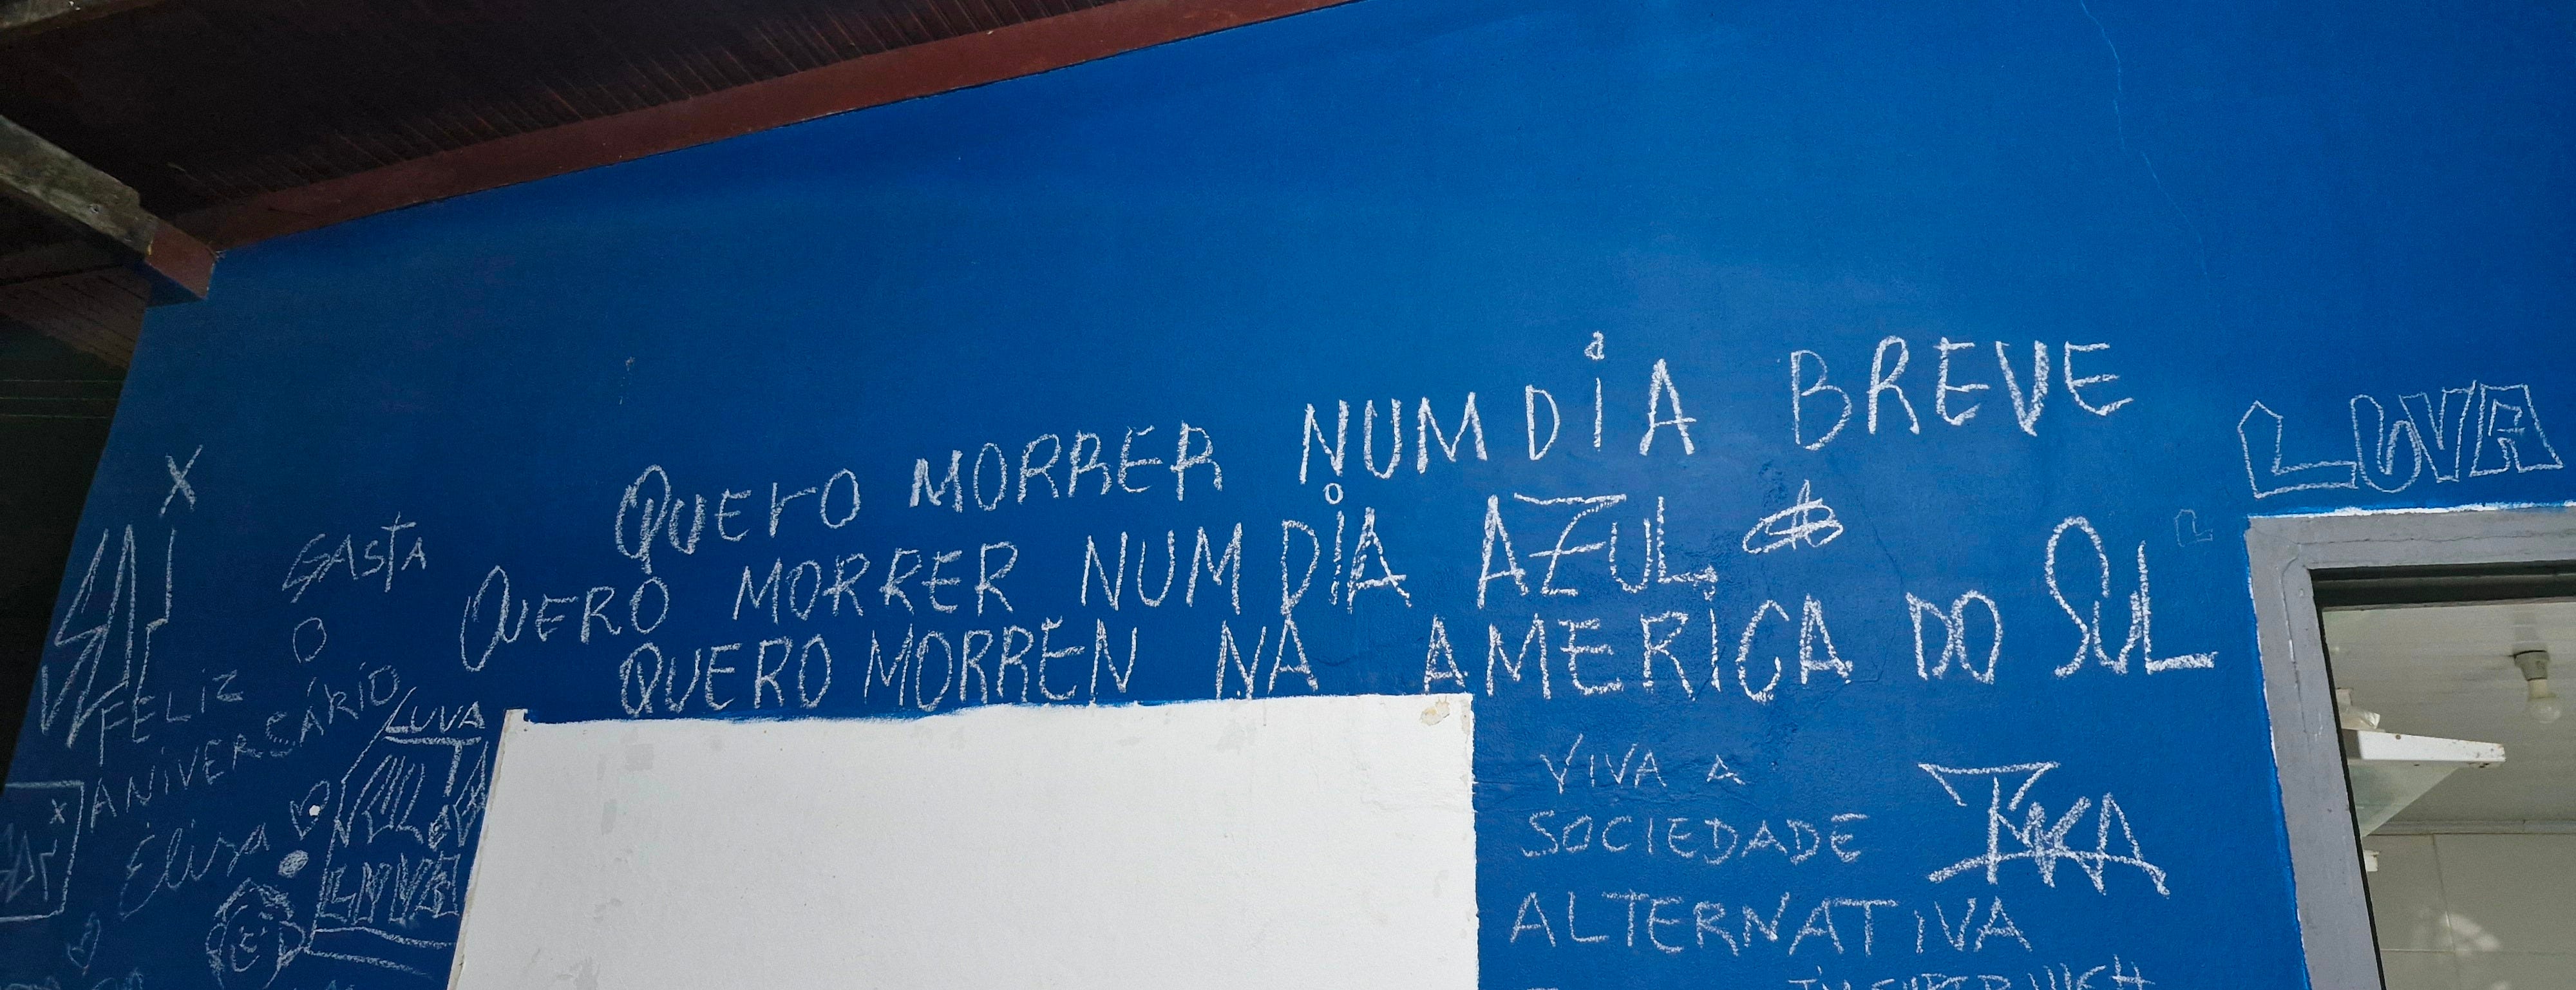 QUERO MORRER NUM DIA BREVE
QUERO MORRER NUM DIA AZUL
QUERO MORREN NA AMERICA DO SUL
LUVA
X
GASTA
O
FELIZ
ANIVERSÁRIO
Eliza
LUVA
X
VIVA A
SOCIEDADE
ALTERNATIVA